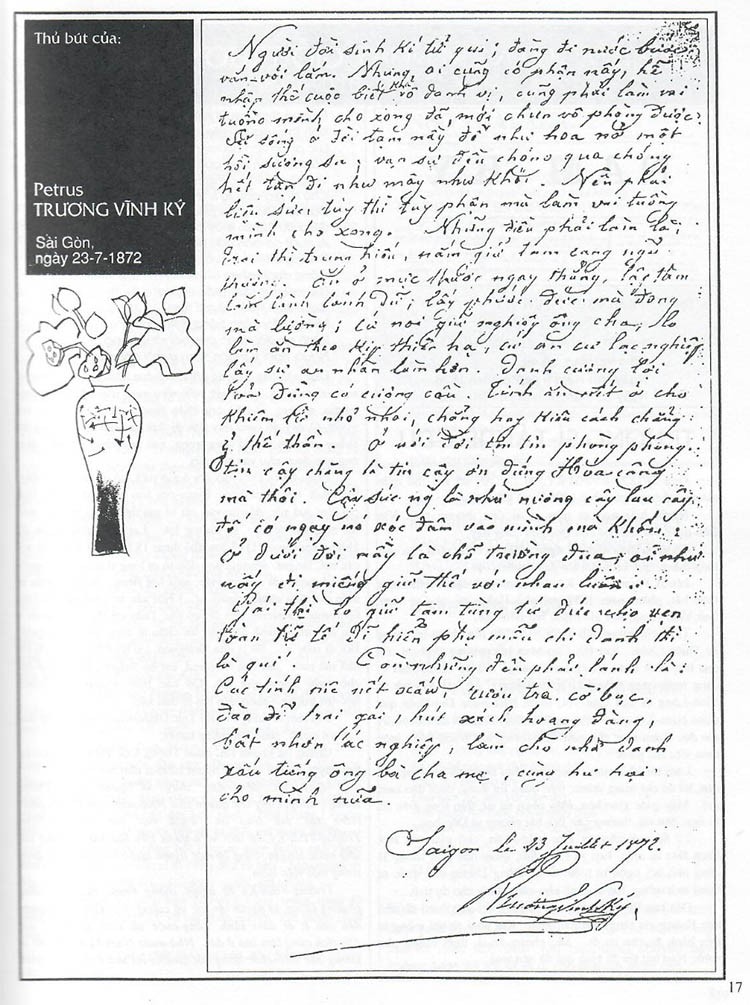 Thủ bút của:
Petrus
TRƯƠNG VĨNH KÝ
Sài Gòn,
ngày 23-7-1872
Người đời sinh kí tử qui; đàng đi nước bước
vắn-vỏi lắm. Nhưng ai cũng có phận nấy, hễ
nhập thế cuộc bất khả vô danh vị, cũng phải làm vai
tuồng mình cho xong đã, mới chun vô phòng được.
Sự sống ở đời tạm nầy đỗ như hoa nở một
hồi sương sa; vạn sự đều chóng qua chóng
hết tan đi như mây như khói. Nên phải
liệu sức, tùy thì tùy phận mà làm vai tuồng
mình cho xong. Những điều phải làm là:
trai thì trung hiếu, nắm giữ tam cang ngũ
thường. Ăn ở mực thước ngay thẳng,
làm lành lánh dữ; lấy phước đức mà đong
mà lường; cứ noi giữ nghiệp ông cha, lo
làm ăn theo kịp thiên hạ, cứ an cư lạc nghiệp
lấy sự an nhàn làm hơn. Danh cương lợi
tỏa đừng có cuồng cầu. Tánh ăn nết ở cho
khiêm nhỏ nhoi, chẳng hay kiêu cách chẳng
ỷ thế thần. Ở với đời em tin phong phong.
tin cậy chăng là tin cậy ơn đấng Hóa công
mà thôi. Cậy sức là như nương cây lau cây
có ngày nó xóc đâm vào mình mà khốn.
Ở dưới đời nầy là chỗ trường đua, ai như
nấy đi miếng giữ thế với nhau luôn.
Gái thì lo giữ tam tùng tứ đức cho vẹn
toàn tử tế dĩ hiển phụ mẫu chi danh thì
là quí. Còn những đều phải lánh là:
Các tính nết xấu, rượu trà, cờ bạc,
đào đĩ trai gái, hút xách hoang đàng,
bất nhơn ác nghiệp, làm cho nhơ danh
xấu tiếng ông bà cha mẹ, cùng hư hại
cho mình nữa.
Saigon le 23 Juillet 1872.
Trương Vĩnh Ký
17